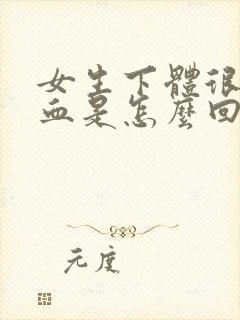 女生下體很
血是怎麼回
元度